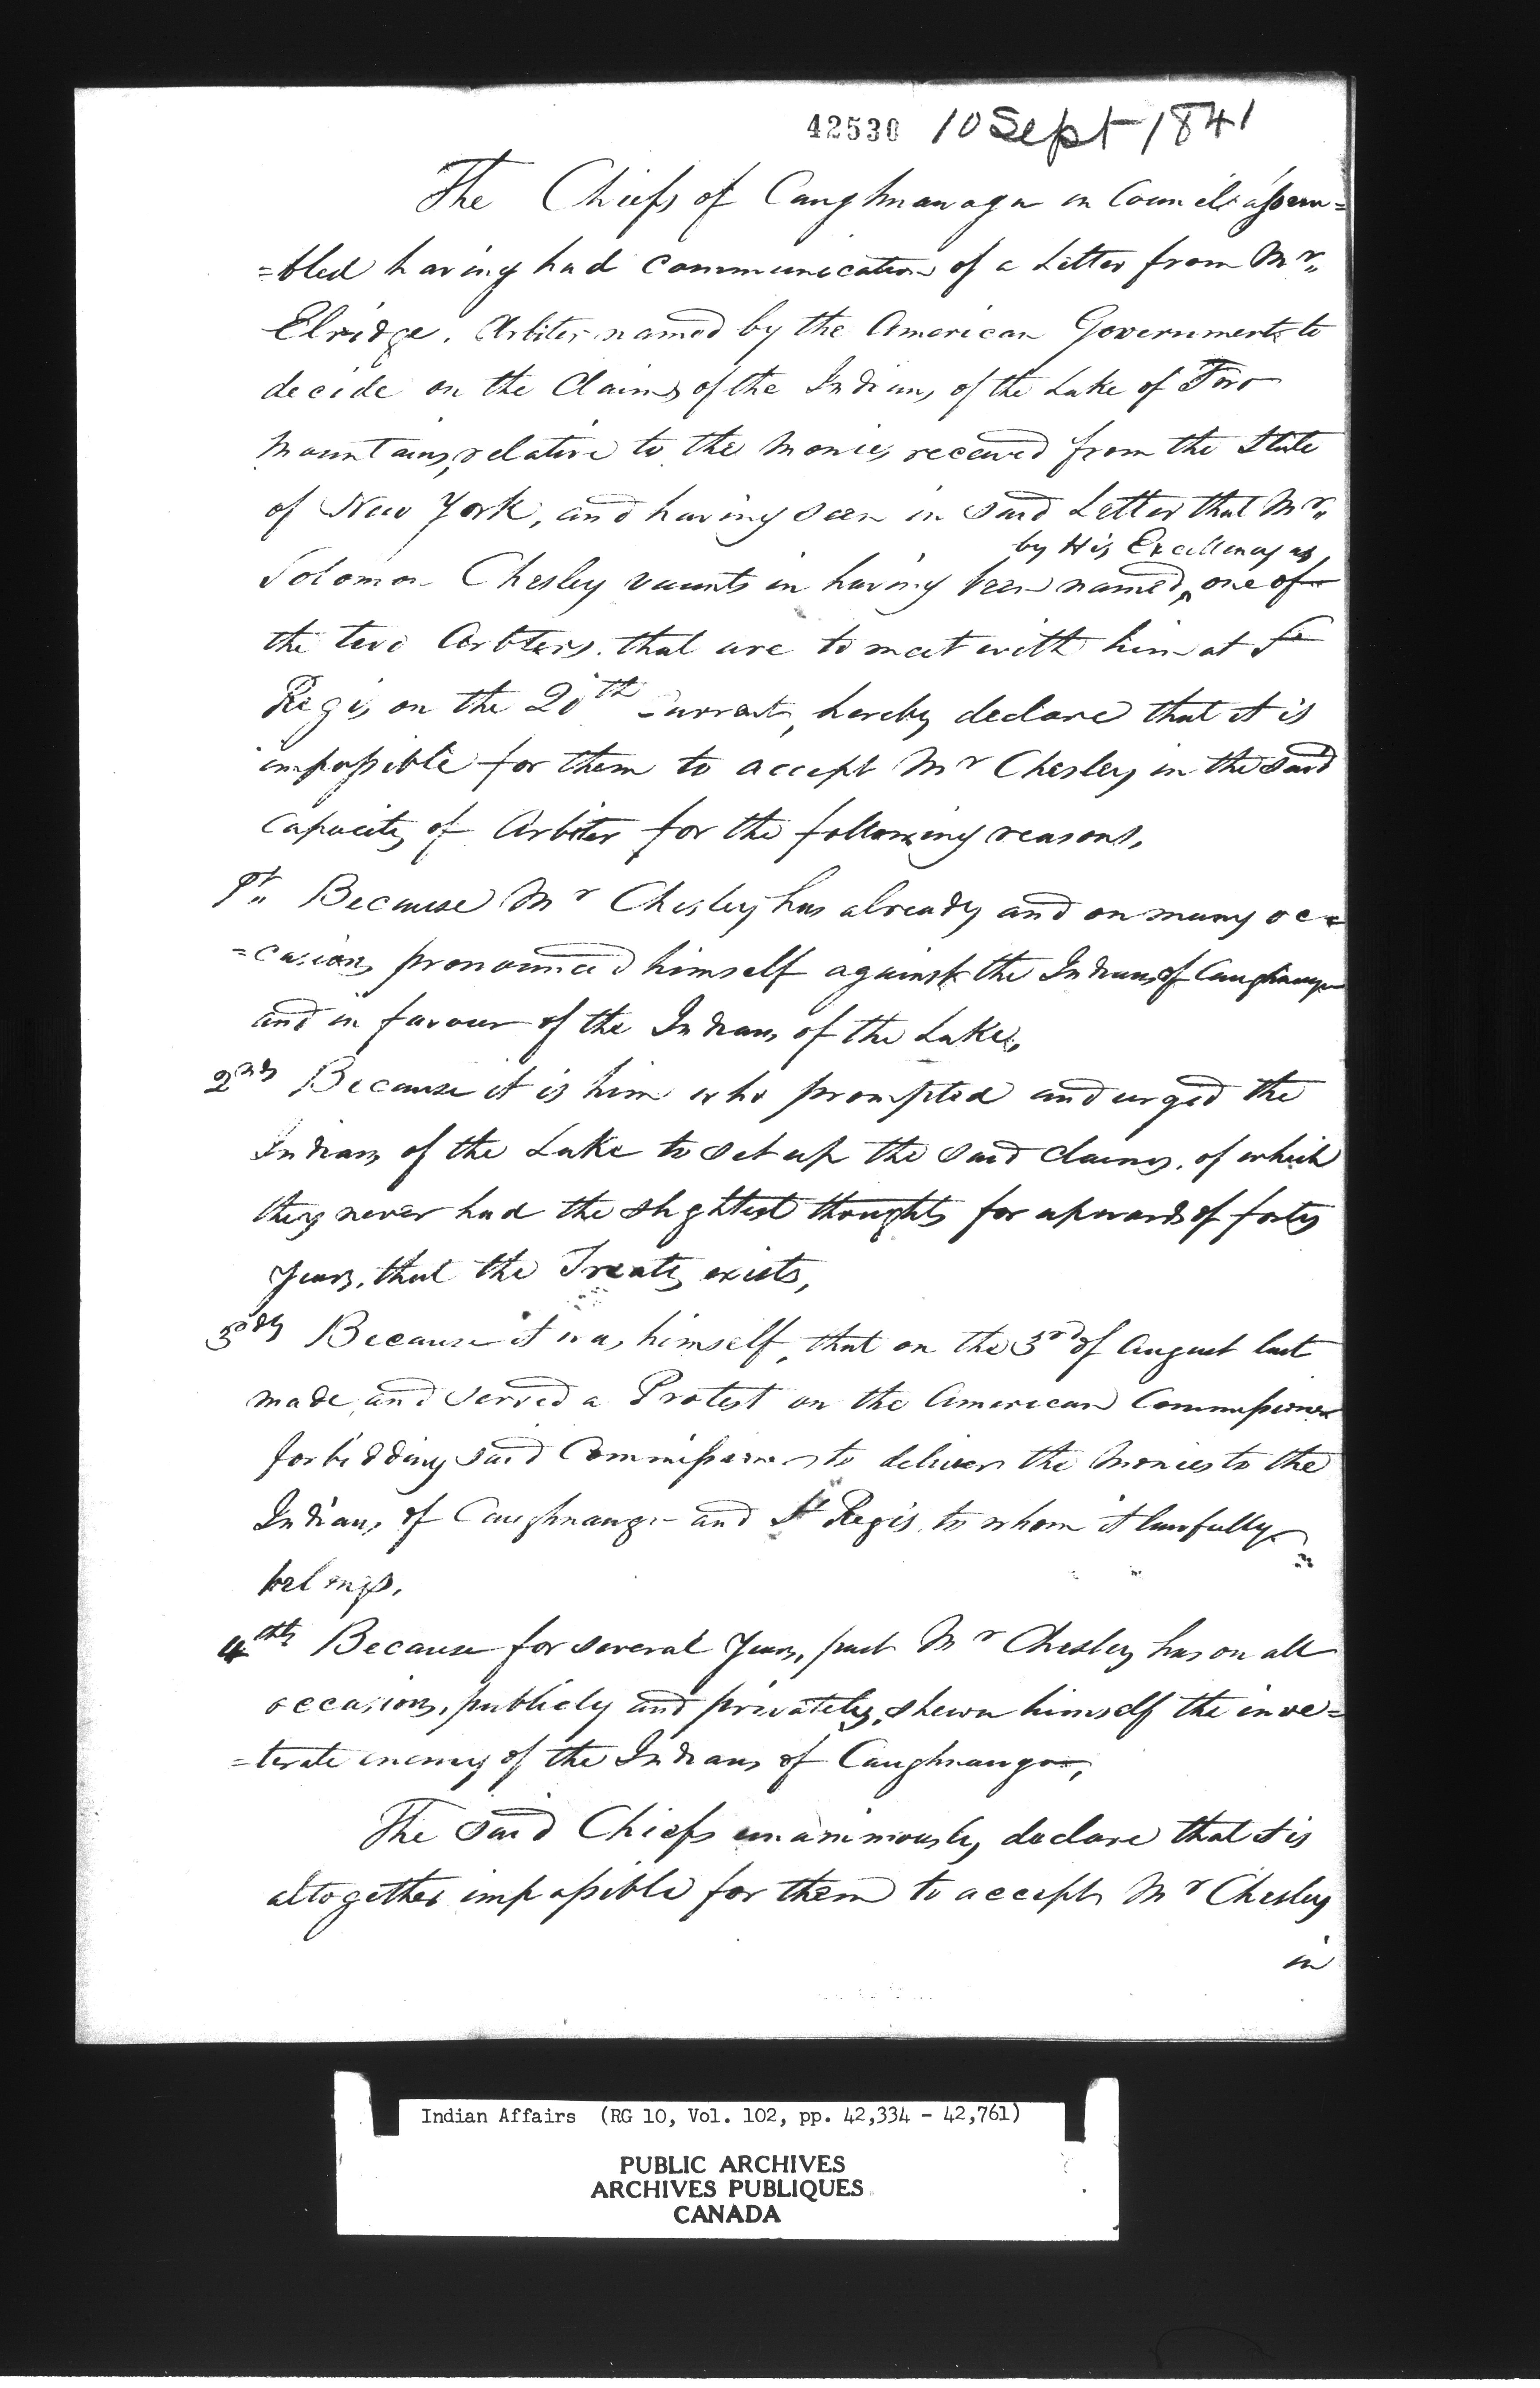 42530 10 Sept 1841
The Chiefs of Caughnawaga in Council assem=
=bled having had communication of a Letter from Mr.
Elridge. Arbiter named by the American Government to
decide on the Claims of the Indians of the Lake of Two
Mountains, relative to the monies received from the State
of New York, and having seen in said Letter that Mr.
by His Excellency as
Solomon Chesley vaunts in having been named, one of
the two Arbters. that are to meet with him at St
Regis on the 20th Currant, hereby declare that it is
impossible for them to accept Mr Chesley in the said
Capacity of Arbiter for the following reasons,
1st. Because Mr Chesley has already and on many oc=
=casions pronounced himself against the Indians of Caughnauga
and in favour of the Indians of the Lake,
2ndly Because it is him who prompted and urged the
Indians of the Lake to set up the said claims, of which
they never had the slightest thoughts for upwards of forty
Years, that the Treaty exists,
3rdly Because it was himself, that on the 3rd of August last
made and served a Protest on the American Commissioner
forbidding said Commissioner to deliver the Monies to the
Indians of Caughnauga and St Regis to whom it lawfully
belongs.
4thly Because for several Years, past Mr Chesley has on all
occasions, publicly and privately, shewn himself the inve=
=terate enemy of the Indians of Caughnauga,
The said Chiefs unanimously declare that it is
altogether impossible for them to accept Mr Chesley
in
Indian Affairs (RG 10, Vol. 102, pp. 42,334 - 42,761)
PUBLIC ARCHIVES
ARCHIVES PUBLIQUES
CANADA